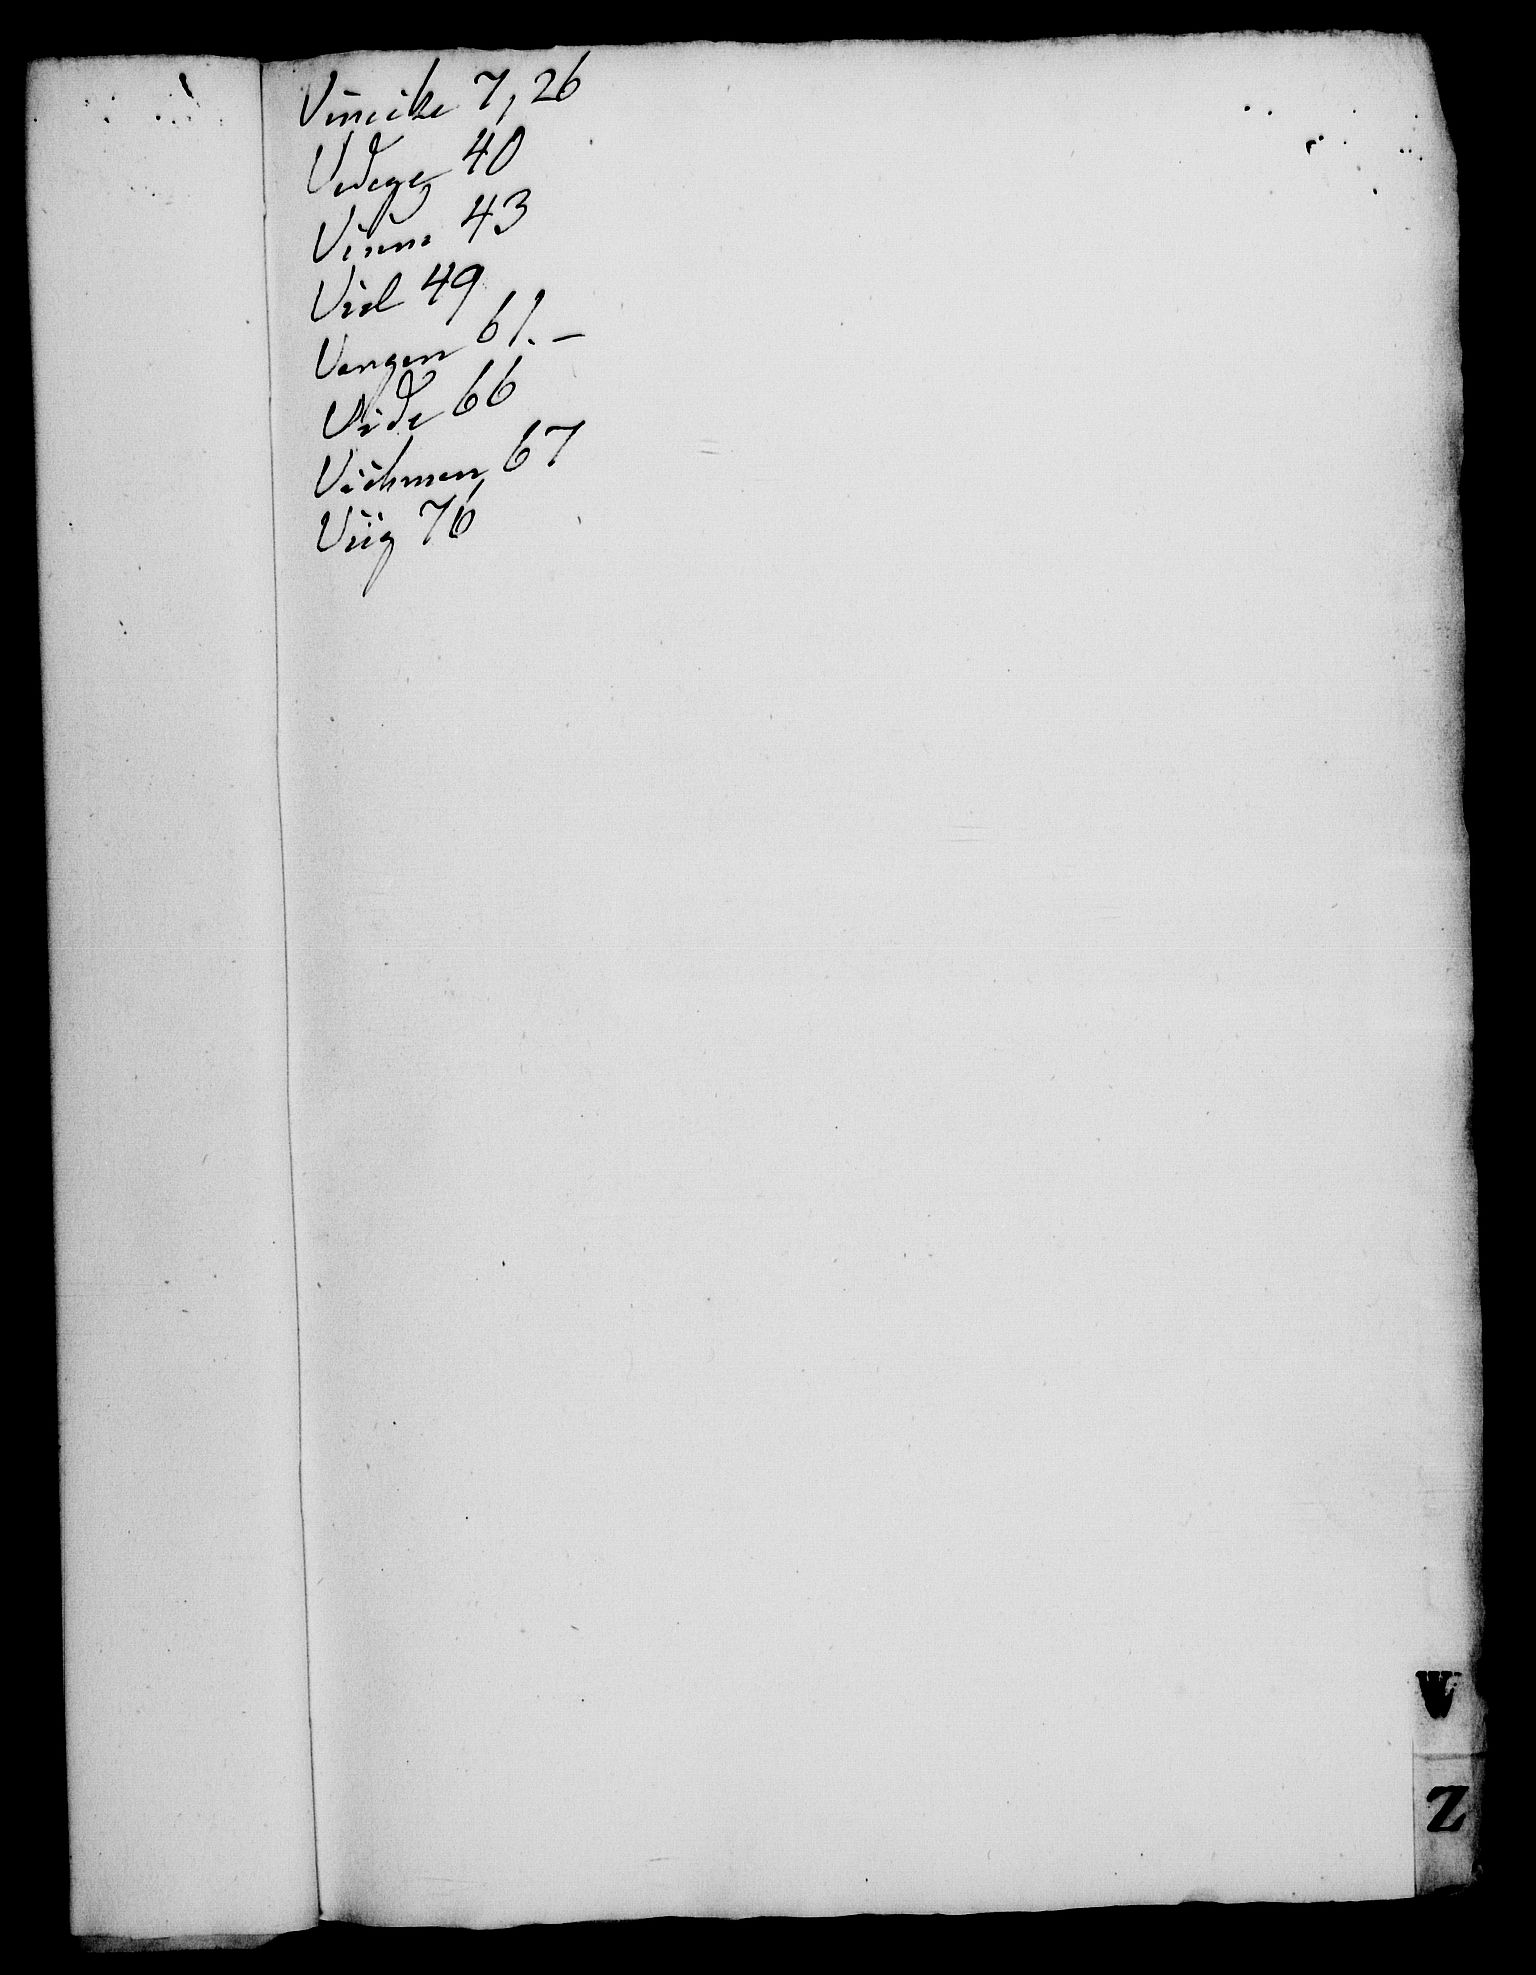 Vinecke 7, 26
Vedege 40
Vinne 43
Viel 49
Vangen 61. –
Vide 66
Vichman, 67
Viig 76
W
Z